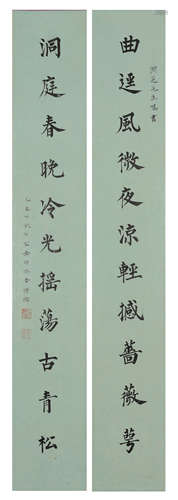 曲逕風微夜涼輕撼薔薇萼
洞庭春晚冷光搖蕩古青松